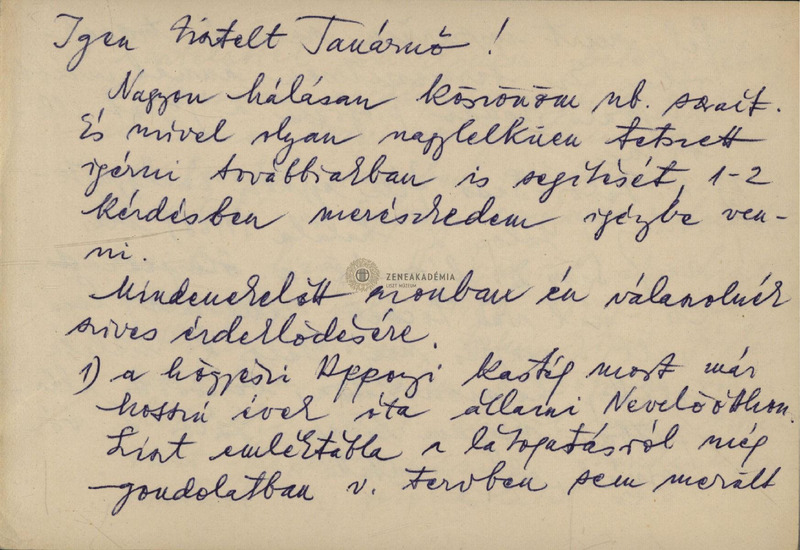 Igen tisztelt Tanárnő!
Nagyon hálásan köszönöm nb. sorait.
És mivel olyan nagylelkűen tetszett
igérni továbbiakban is segítését, 1-2
kérdésben merészkedem igénybe ven-
ni.
ZENEAKADÉMIA
LISZT MÚZEUM
Mindenekelőtt azonban én válaszolnék
szives érdeklődésére.
1) a hőgyészi Apponyi kastély most már
hosszú évek óta állami Nevelőotthon.
Liszt emléktábla a látogatásról még
gondolatban v. tervben sem merült